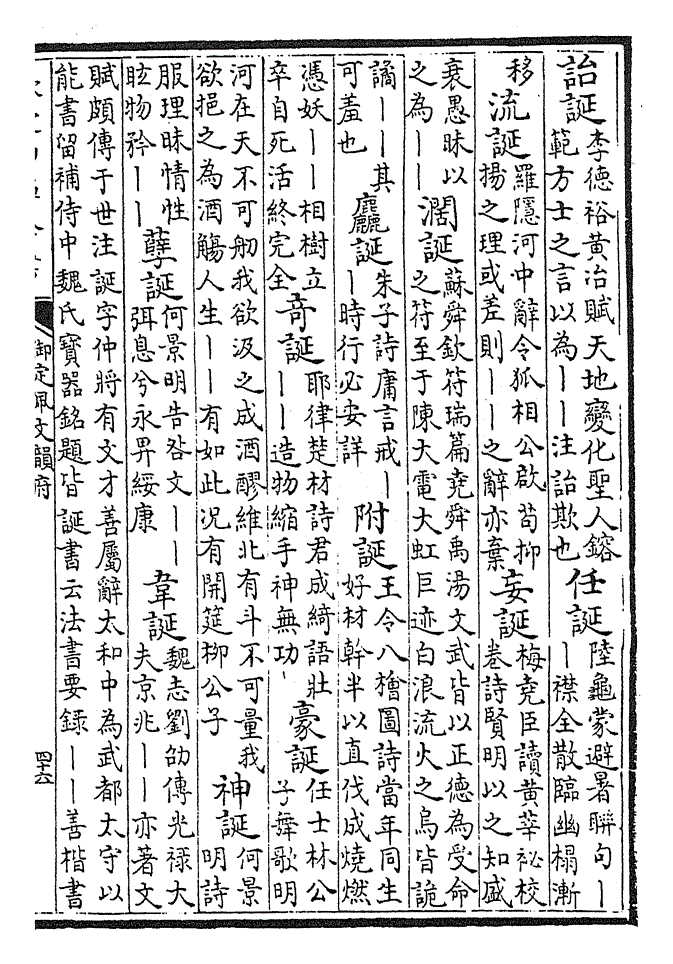 詒誕李德裕黄冶賦天地變化聖人鎔範方士之言以為丨丨注詒欺也任誕陸龜蒙避暑聨句丨丨襟全散臨幽榻漸
移流誕羅隱河中辭令狐相公啟苟抑揚之理或差則丨丨之辭亦棄妄誕梅堯臣讀黄莘祕校卷詩賢明以之知盛
衰愚昧以之為丨丨濶誕蘇舜欽符瑞篇堯舜禹湯文武皆以正德為受命之符至于陳大電大虹巨迹白浪流火之烏皆詭
譎丨丨其可羞也麤誕朱子詩庸言戒丨丨時行必安詳附誕王令八檜圖詩當年同生好材幹半以直伐成燒燃
憑妖丨丨相樹立卒自死活終完全奇誕耶律楚材詩君成綺語壯丨丨造物縮手神無功豪誕任士林公子舞歌明
河在天不可舠我欲汲之成酒醪維北有斗不可量我欲挹之為酒觴人生丨丨有如此况有開筵栁公子神誕何景明詩
服理昧情性眩物矜丨丨孽誕何景明告咎文丨丨弭息兮永畀綏康韋誕魏志劉劭傳光禄大夫京兆丨丨亦著文
賦頗傳于世注誕字仲將有文才善屬辭太和中為武都太守以能書留補侍中魏氏寳器銘題皆誕書云法書要録丨丨善楷書
御定佩文韻府
四十六